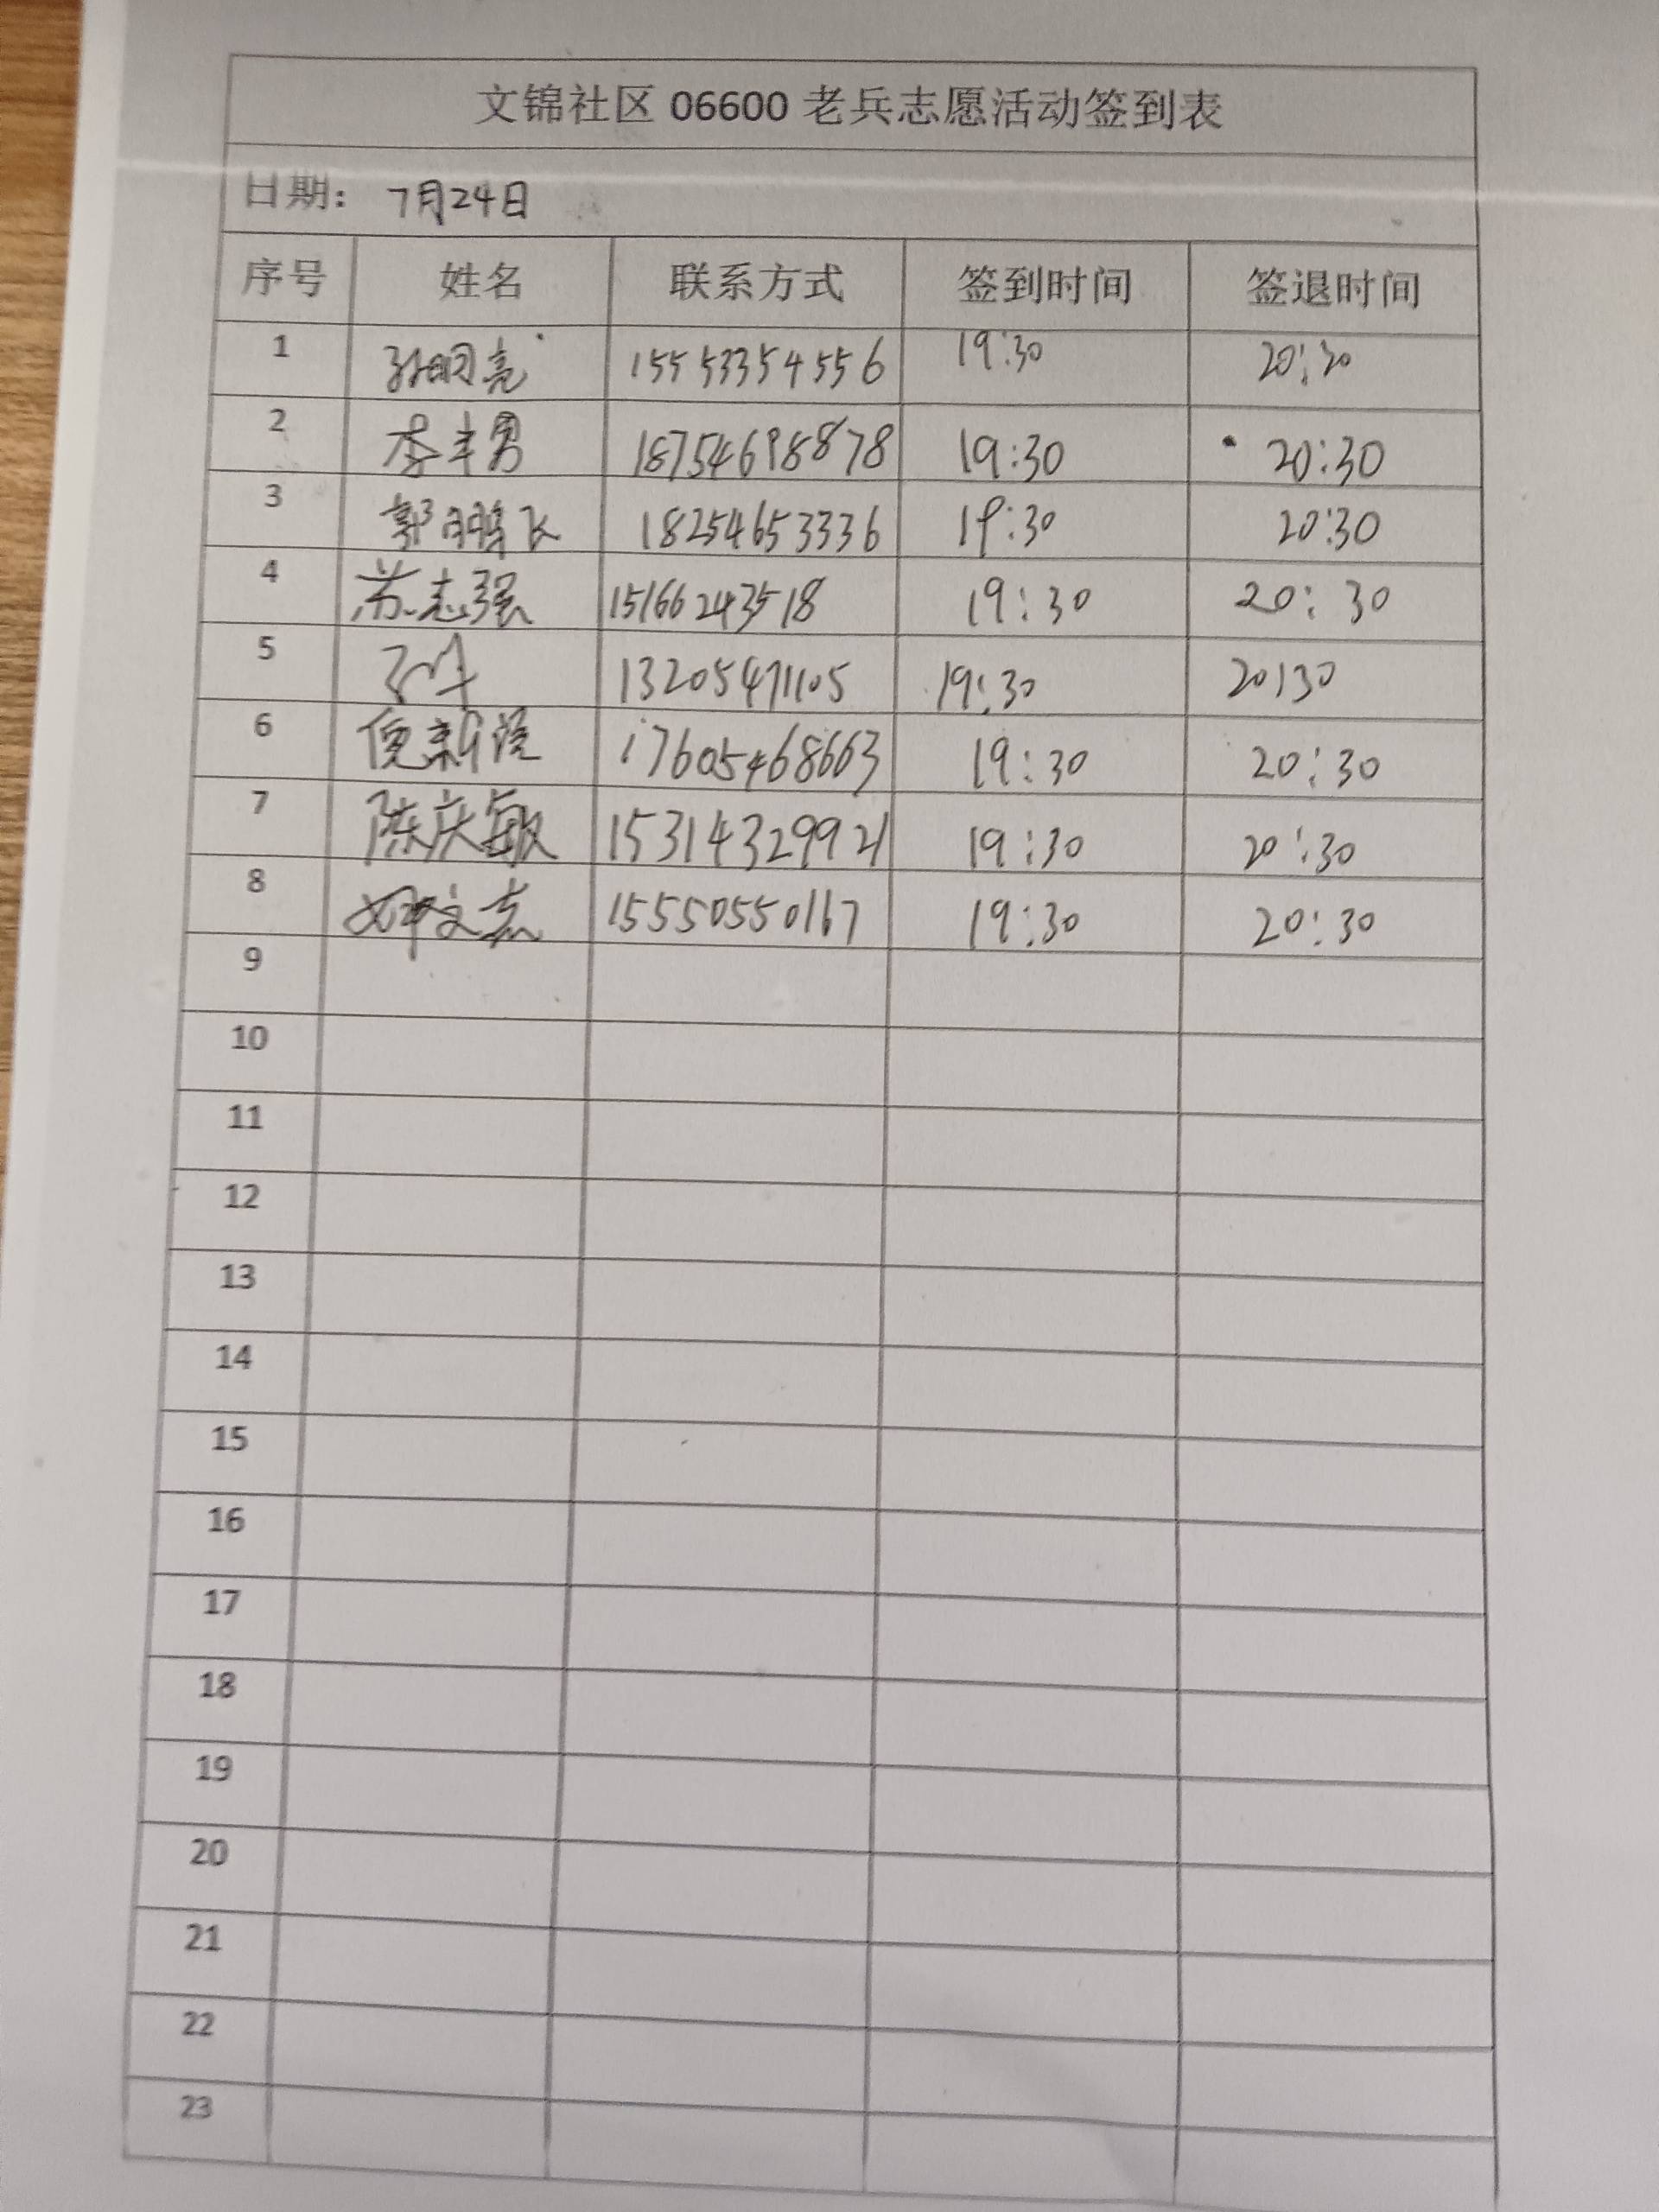 文锦社区 06600 老兵志愿活动签到表
日期： 7月24日
序号 姓名 联系方式 签到时间 签退时间
1 孙明亮 15553354556 19:30 20:30
2 李丰男 18754698878 19:30 20:30
3 郭鹏飞 18254653336 19:30 20:30
4 苏志强 15166243518 19:30 20:30
5 13205471105 19:30 20:30
6 倪新 17605468663 19:30 20:30
7 陈庆敏 15314329921 19:30 20:30
8 15550550167 19:30 20:30
9
10
11
12
13
14
15
16
17
18
19
20
21
22
23